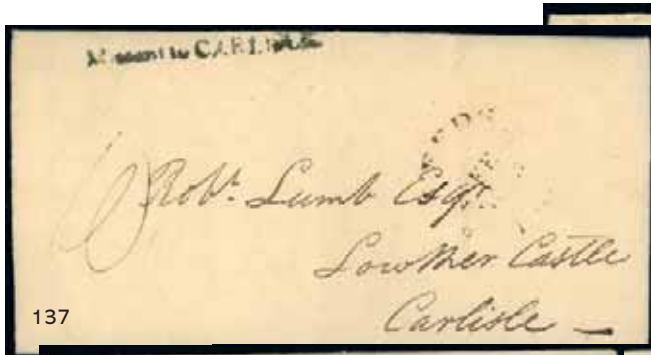 Missent to CARLISLE
LEEDS
Robt. Lumb Esqr.
Lowther Castle
Carlisle —
137